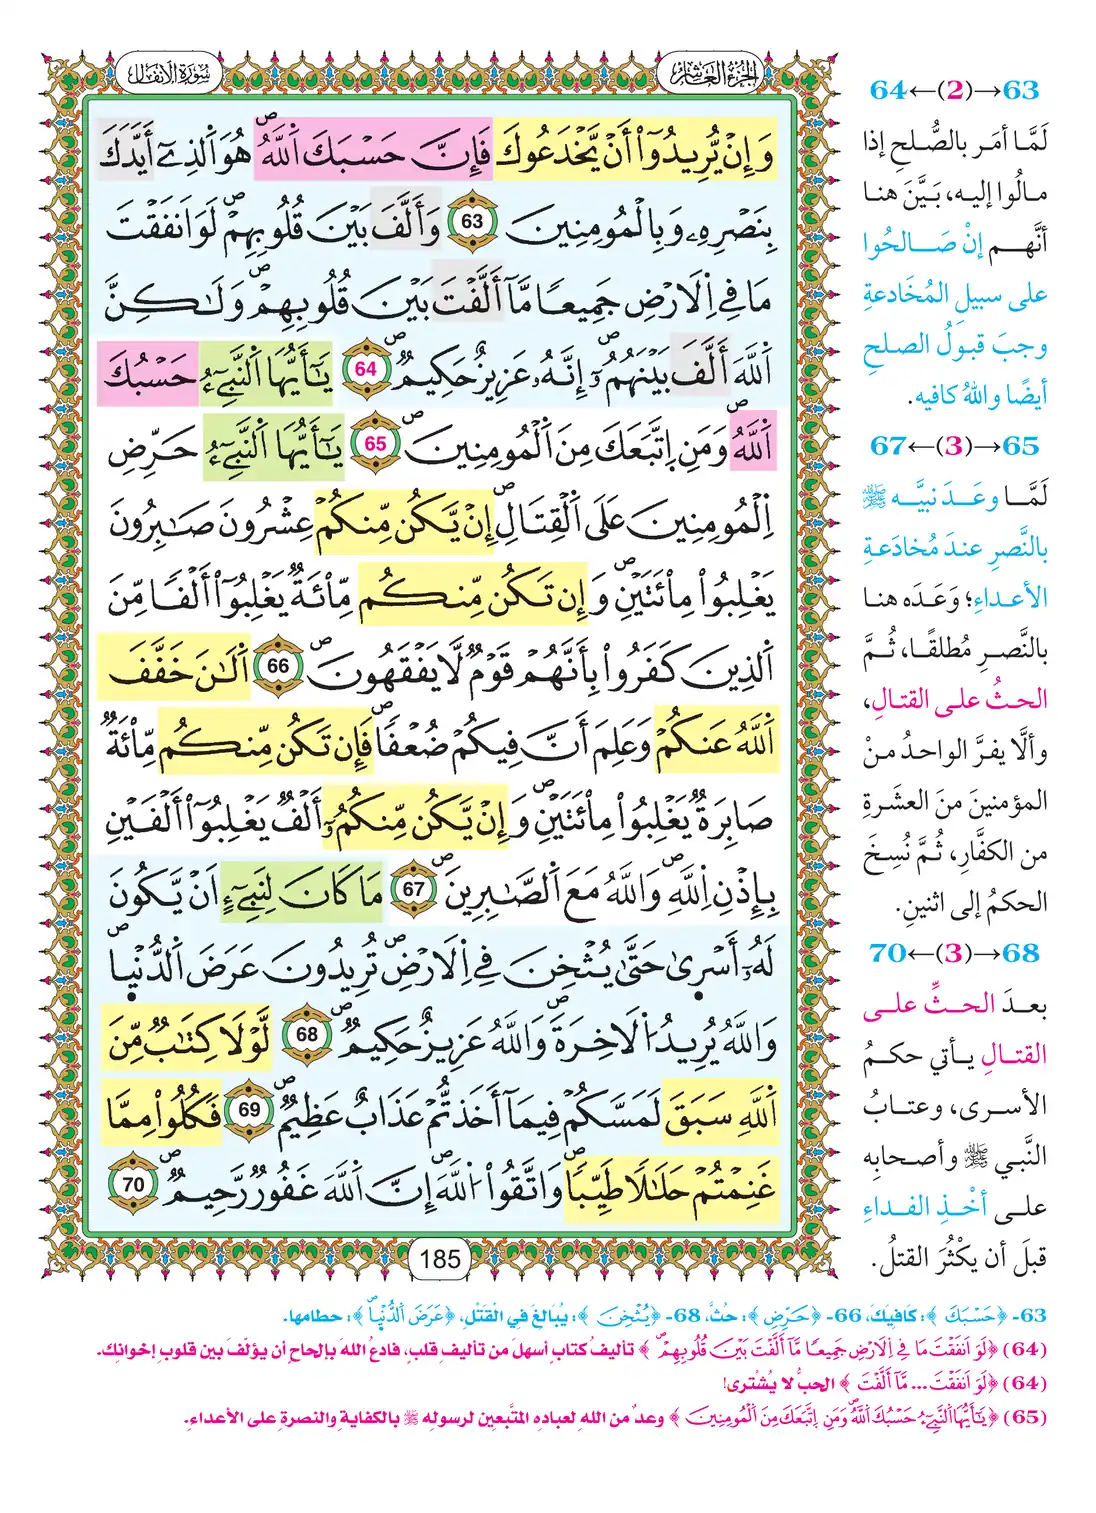 الجزء العاشر
سورة الانفال
وَإِنْ يُّرِيدُوٓاْ أَنْ يَّخْدَعُوكَ فَإِنَّ حَسْبَكَ اَ۬للَّهُۖ هُوَ اَ۬لذِےٓ أَيَّدَكَ
بِنَصْرِهِۦ وَبِالْمُومِنِينَ 63 وَأَلَّفَ بَيْنَ قُلُوبِهِمْۖ لَوَ اَنفَقْتَ
مَا فِے اِ۬لَارْضِ جَمِيعاٗ مَّآ أَلَّفْتَ بَيْنَ قُلُوبِهِمْۖ وَلَٰكِنَّ
اَ۬للَّهَ أَلَّفَ بَيْنَهُمُۥٓۖ إِنَّهُۥ عَزِيزٌ حَكِيمٞۖ 64 يَٰٓأَيُّهَا اَ۬لنَّبِےٓءُ حَسْبُكَ
اَ۬للَّهُۖ وَمَنِ اِ۪تَّبَعَكَ مِنَ اَ۬لْمُومِنِينَۖ 65 يَٰٓأَيُّهَا اَ۬لنَّبِےٓءُ حَرِّضِ
اِ۬لْمُومِنِينَ عَلَي اَ۬لْقِتَالِۖ إِنْ يَّكُن مِّنكُمْ عِشْرُونَ صَٰبِرُونَ
يَغْلِبُواْ مِاْئَتَيْنِۖ وَإِن تَكُن مِّنكُم مِّاْئَةٞ يَغْلِبُوٓاْ أَلْفاٗ مِّنَ
اَ۬لذِينَ كَفَرُواْ بِأَنَّهُمْ قَوْمٞ لَّا يَفْقَهُونَۖ 66 اَ۬لَٰنَ خَفَّفَ
اَ۬للَّهُ عَنكُمْ وَعَلِمَ أَنَّ فِيكُمْ ضُعْفاٗۖ فَإِن تَكُن مِّنكُم مِّاْئَةٞ
صَابِرَةٞ يَغْلِبُواْ مِاْئَتَيْنِۖ وَإِنْ يَّكُن مِّنكُمُۥٓ أَلْفٞ يَغْلِبُوٓاْ أَلْفَيْنِ
بِإِذْنِ اِ۬للَّهِۖ وَاللَّهُ مَعَ اَ۬لصَّٰبِرِينَۖ 67 مَا كَانَ لِنَبِےٓءٍ اَنْ يَّكُونَ
لَهُۥٓ أَسْر۪يٰ حَتَّيٰ يُثْخِنَ فِے اِ۬لَارْضِۖ تُرِيدُونَ عَرَضَ اَ۬لدُّنْي۪اۖ
وَاللَّهُ يُرِيدُ اُ۬لَاخِرَةَۖ وَاللَّهُ عَزِيزٌ حَكِيمٞۖ 68 لَّوْلَا كِتَٰبٞ مِّنَ
اَ۬للَّهِ سَبَقَ لَمَسَّكُمْ فِيمَآ أَخَذتُّمْ عَذَابٌ عَظِيمٞۖ 69 فَكُلُواْ مِمَّا
غَنِمْتُمْ حَلَٰلاٗ طَيِّباٗۖ وَاتَّقُواْ اُ۬للَّهَۖ إِنَّ اَ۬للَّهَ غَفُورٞ رَّحِيمٞۖ 70
185
63→(2)←64
لَمَّا أمَر بالصُّلحِ إذا
مالُوا إليه، بَيَّنَ هنا
أنَّهم إنْ صَالحُوا
على سبيلِ المُخَادعةِ
وجبَ قبولُ الصلحِ
أيضًا واللهُ كافيه.
65→(3)←67
لَمَّا وعَدَ نبيَّه ﷺ
بالنَّصرِ عندَ مُخادَعةِ
الأعداءِ؛ وَعَدَه هنا
بالنَّصرِ مُطلقًا، ثُمَّ
الحثُ على القتالِ،
وألَّا يفرَّ الواحدُ منْ
المؤمنينَ منَ العشَرةِ
من الكفَّارِ، ثُمَّ نُسِخَ
الحكمُ إلى اثنينِ.
68→(3)←70
بعدَ الحثِّ على
القتالِ يأتي حكمُ
الأسرى، وعتابُ
النَّبي ﷺ وأصحابِه
على أخْذِ الفداءِ
قبلَ أن يكْثُرَ القتلُ.
63- ﴿حَسْبَكَ﴾: كَافِيَكَ، 66- ﴿حَرِّضِ﴾: حُثَّ، 68- ﴿يُثْخِنَ﴾: يُبَالِغَ فِي القَتْلِ، ﴿عَرَضَ اَ۬لدُّنْي۪اۖ﴾: حطامها.
(64) ﴿لَوَ اَنفَقْتَ مَا فِے اِ۬لَارْضِ جَمِيعاٗ مَّآ أَلَّفْتَ بَيْنَ قُلُوبِهِمْۖ﴾ تأليفُ كتابٍ أسهلَ من تأليفِ قلبٍ، فادعُ اللهَ بإلحاحٍ أن يؤلِّفَ بين قلوبِ إخوانِك.
(64) ﴿لَوَ اَنفَقْتَ ... مَّآ أَلَّفْتَ﴾ الحبُّ لا يُشترى!
(65) ﴿يَٰٓأَيُّهَا اَ۬لنَّبِےٓءُ حَسْبُكَ اَ۬للَّهُۖ وَمَنِ اِ۪تَّبَعَكَ مِنَ اَ۬لْمُومِنِينَ﴾ وعدٌ من الله لعباده المتَّبعين لرسوله ﷺ بالكفاية والنصرة على الأعداءِ.